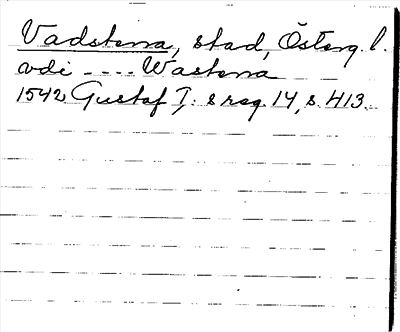 Vadstena, stad, Österg. l.
vdi - - - - Wastena
1542 Gustaf I: s reg. 14, s. 413.